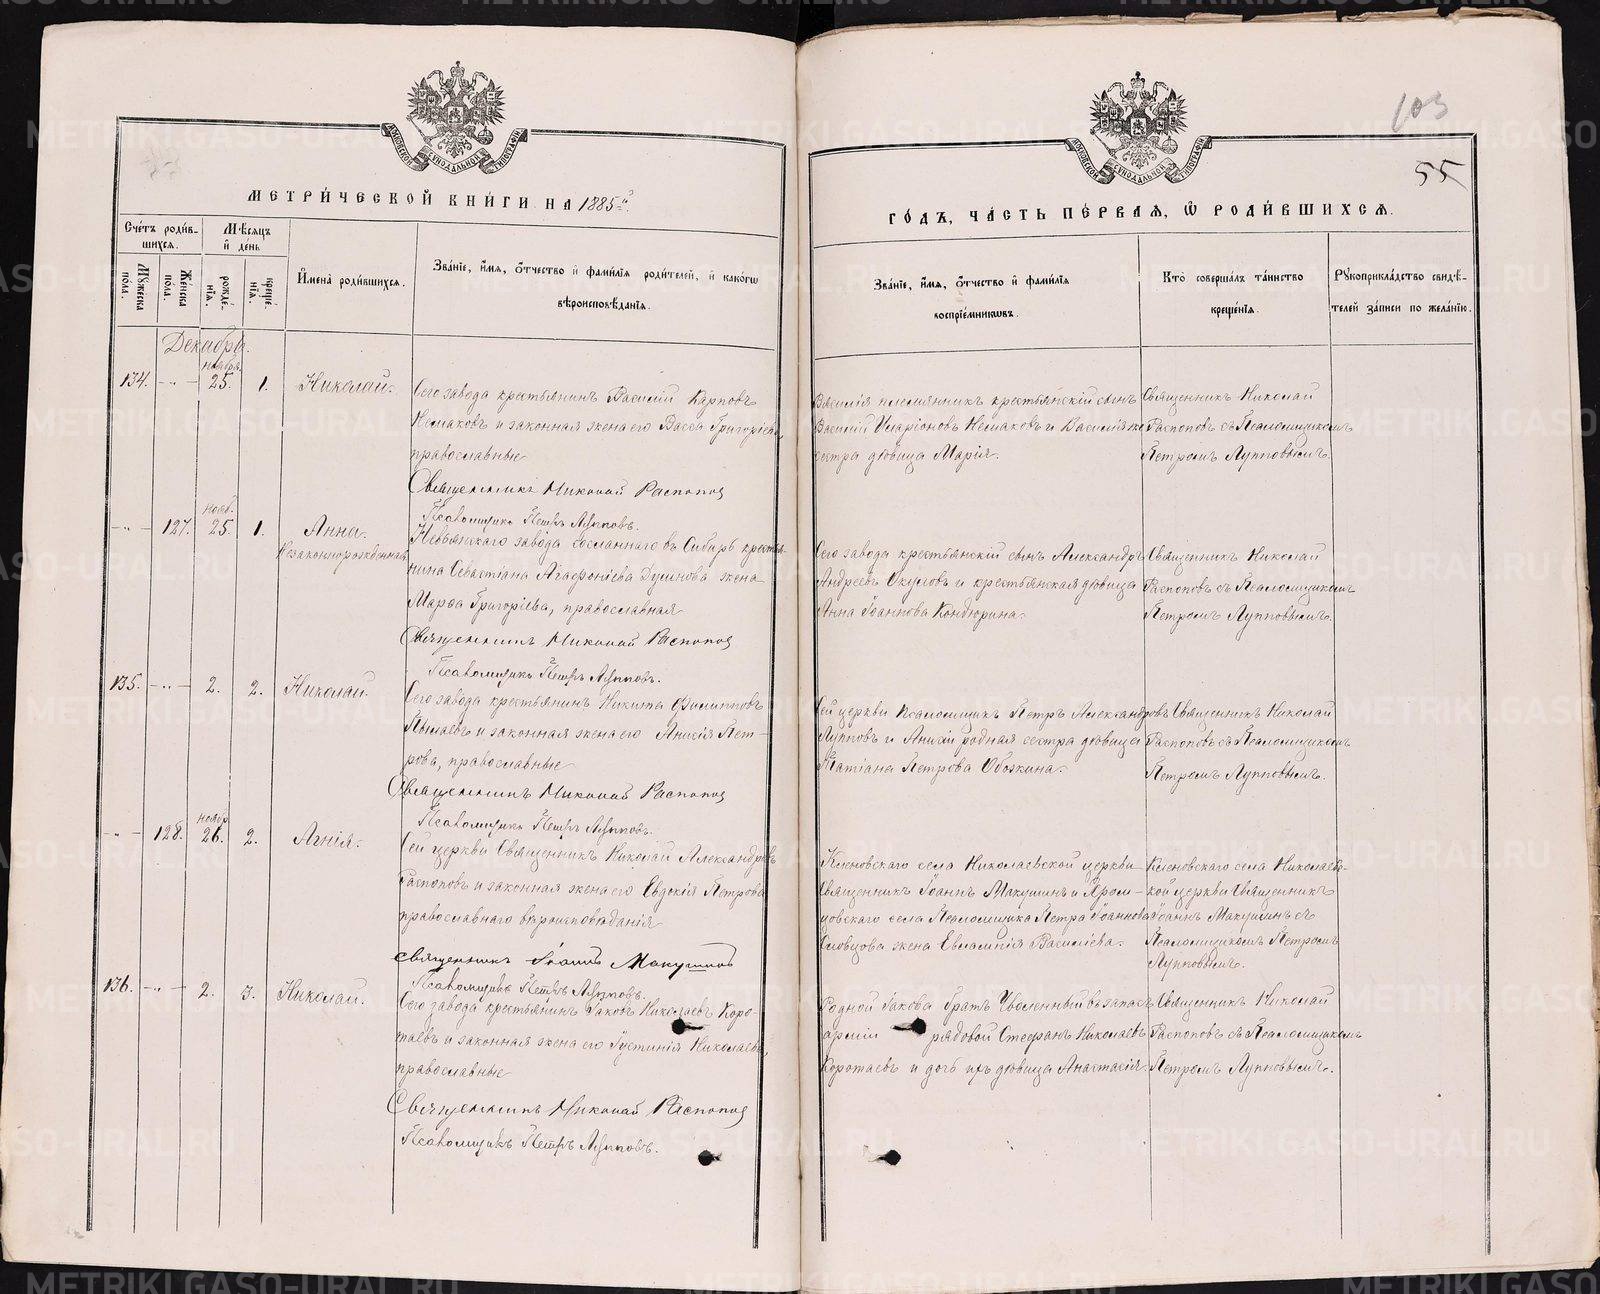 МЕТРИ́ЧЕСКОЙ КНИ́ГИ НА 1885й
ГО́ДЪ, ЧА́СТЬ ПЕ́РВАЯ, Ѽ РОДИ́ВШИХСЯ.
103
55
Сче́тъ роди́в-
шихся.
Мѣ́сяцъ
и҆ де́нь
Му́жеска
по́ла.
Же́нска
по́ла.
рожде́-
нїя.
креще́-
нїя.
И҆мена̀ роди́вшихся.
Зва́нїе, и҆́мя, ѻ҆́тчество и҆ фами́лїя роди́телей, и҆ како́гѡ
вѣроисповѣ́данїя.
Зва́нїе, и҆́мя, ѻ҆́тчество и҆ фами́лїя
воспрїе́мникѡвъ.
Кто̀ соверша́лъ та́инство
креще́нїя.
Рукоприкла́дство свидѣ́-
телей за́писи по жела́нїю.
Декабрь.
ноябрь
134. -„- 25. 1. Николай.
Сего завода крестьянинъ Василій Карповъ
и законная жена его Васса Григоріева,
православные
Священникъ Николай Распопов
Псаломщикъ Петръ Лупповъ.
Василія племянникъ крестьянскій сынъ
Василій Иларіоновъ и Василія же
сестра дѣвица Марія.
Священникъ Николай
Распоповъ съ Псаломщикомъ
Петромъ Лупповымъ.
нояб.
-„- 127. 25. 1. Анна.
Незаконнорожденная
Невьянскаго завода сосланнаго въ Сибирь крестья-
нина Севастіана Агафоніева жена
Марѳа Григоріева, православная
Священникъ Николай Распопов
Псаломщикъ Петръ Лупповъ.
Сего завода крестьянскій сынъ Александръ
Андреевъ Окуловъ и крестьянская дѣвица
Анна Іоаннова Кондюрина.
Священникъ Николай
Распоповъ съ Псаломщикомъ
Петромъ Лупповымъ.
135. -„- 2. 2. Николай.
Сего завода крестьянинъ Никита Филипповъ
и законная жена его Анисія Пет-
рова, православные
Священникъ Николай Распопов
Псаломщикъ Петръ Лупповъ.
Сей церкви Псаломщикъ Петръ Александровъ
Лупповъ и Анисіи родная сестра дѣвица
Татіана Петрова Обоскина.
Священникъ Николай
Распоповъ съ Псаломщикомъ
Петромъ Лупповымъ.
ноябр
-„- 128. 26. 2. Агнія.
Сей церкви Священникъ Николай Александровъ
Распоповъ и законная жена его Евдокія Петрова
православнаго вѣроисповѣданія
Священникъ Іоаннъ Макушинъ
Псаломщикъ Петръ Лупповъ.
Кленовскаго села Николаевской церкви
Священникъ Іоаннъ Макушинъ и
села Псаломщика Петра Іоаннова
Словцова жена Евлампія Василіева.
Кленовскаго села Николаевс-
кой церкви Священникъ
Іоаннъ Макушинъ съ
Псаломщикомъ Петромъ
Лупповымъ.
136. -„- 2. 3. Николай.
Сего завода крестьянинъ Іаковъ Николаевъ Коро-
таевъ и законная жена его Іустинія Николаева,
православные
Священникъ Николай Распопов
Псаломщикъ Петръ Лупповъ.
Родной Іакова братъ Уволенный въ запасъ
арміи рядовой Стефанъ Николаевъ
Коротаевъ и дочь ихъ дѣвица Анастасія.
Священникъ Николай
Распоповъ съ Псаломщикомъ
Петромъ Лупповымъ.